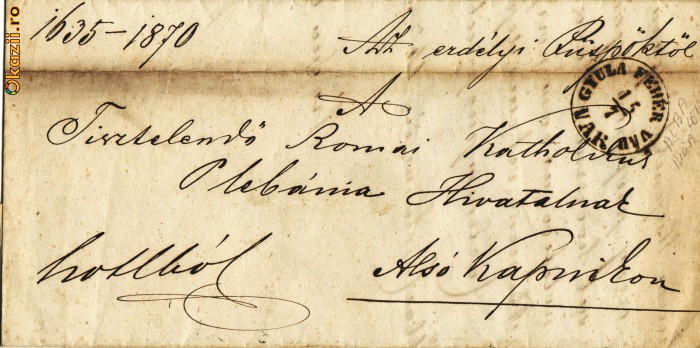 Okazii.ro
1635-1870 Az erdélyi Püspöktől
A
Tisztelendő Romai Katholikus
Plebánia Hivatalnak
hottból Alsó Kapnikon
GYULA FEHÉR VÁR
15
7
ALBA